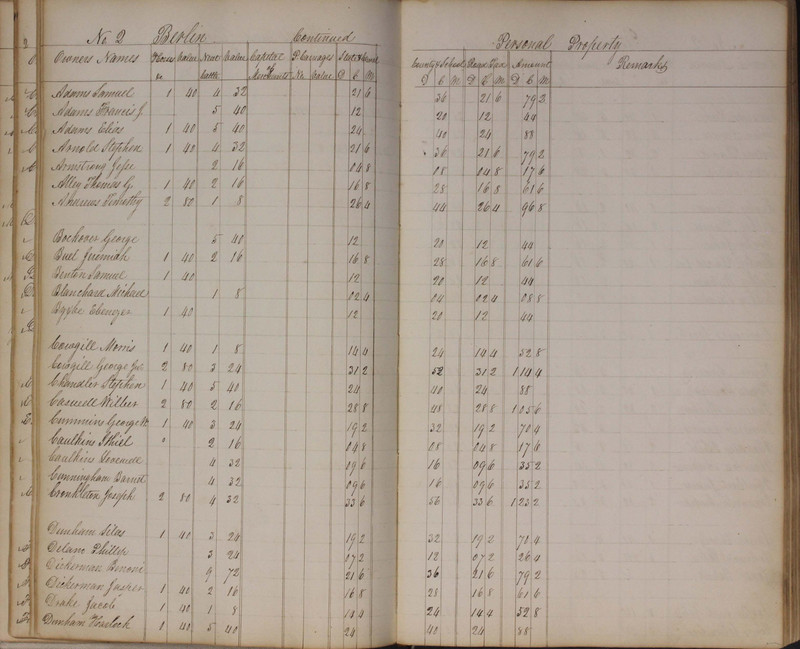 No 2 Berlin Continued Personal Property
Owners Names Horses Value Neat Value Capital P. Carriages State & Canal County & School Road Tax Amount Remarks
No. Cattle Merchants No. Value D C M D C M D C M D C M
Adams Samuel 1 40 4 32 21 6 36 21 6 79 2
Adams Francis J. 5 40 12 20 12 44
Adams Elias 1 40 5 40 24 40 24 88
Arnold Stephen 1 40 4 32 21 6 36 21 6 79 2
Armstrong Jesse 2 16 04 8 08 04 8 17 6
Alley Thomas G. 1 40 2 16 16 8 28 16 8 61 6
Timothy 2 80 1 8 26 4 44 26 4 96 8
George 5 40 12 20 12 44
Buel Jeremiah 1 40 2 16 16 8 28 16 8 61 6
Benton Samuel 1 40 12 20 12 44
Blanchard Michael 1 8 02 4 04 02 4 08 8
Ebenezer 1 40 12 20 12 44
Cowgill Morris 1 40 1 8 14 4 24 14 4 52 8
Cowgill George 2 80 3 24 31 2 52 31 2 1 14 4
Chandler Stephen 1 40 5 40 24 40 24 88
Caswell Wilber 2 80 2 16 28 8 48 28 8 1 05 6
Cummins George W. 1 40 3 24 19 2 32 19 2 70 4
Caulkins Ithiel 2 16 04 8 08 04 8 17 6
Caulkins Lovewell 4 32 09 6 16 09 6 35 2
Cunningham Barnet 4 32 09 6 16 09 6 35 2
Cronkleton Joseph 2 80 4 32 33 6 56 33 6 1 23 2
Dunham Silas 1 40 3 24 19 2 32 19 2 70 4
Delano Phillip 3 24 07 2 12 07 2 26 4
Dickerman 9 72 21 6 36 21 6 79 2
Dickerman Jasher 1 40 2 16 16 8 28 16 8 61 6
Drake Jacob 1 40 1 8 14 4 24 14 4 52 8
Dunham Havlock 1 40 5 40 24 40 24 88